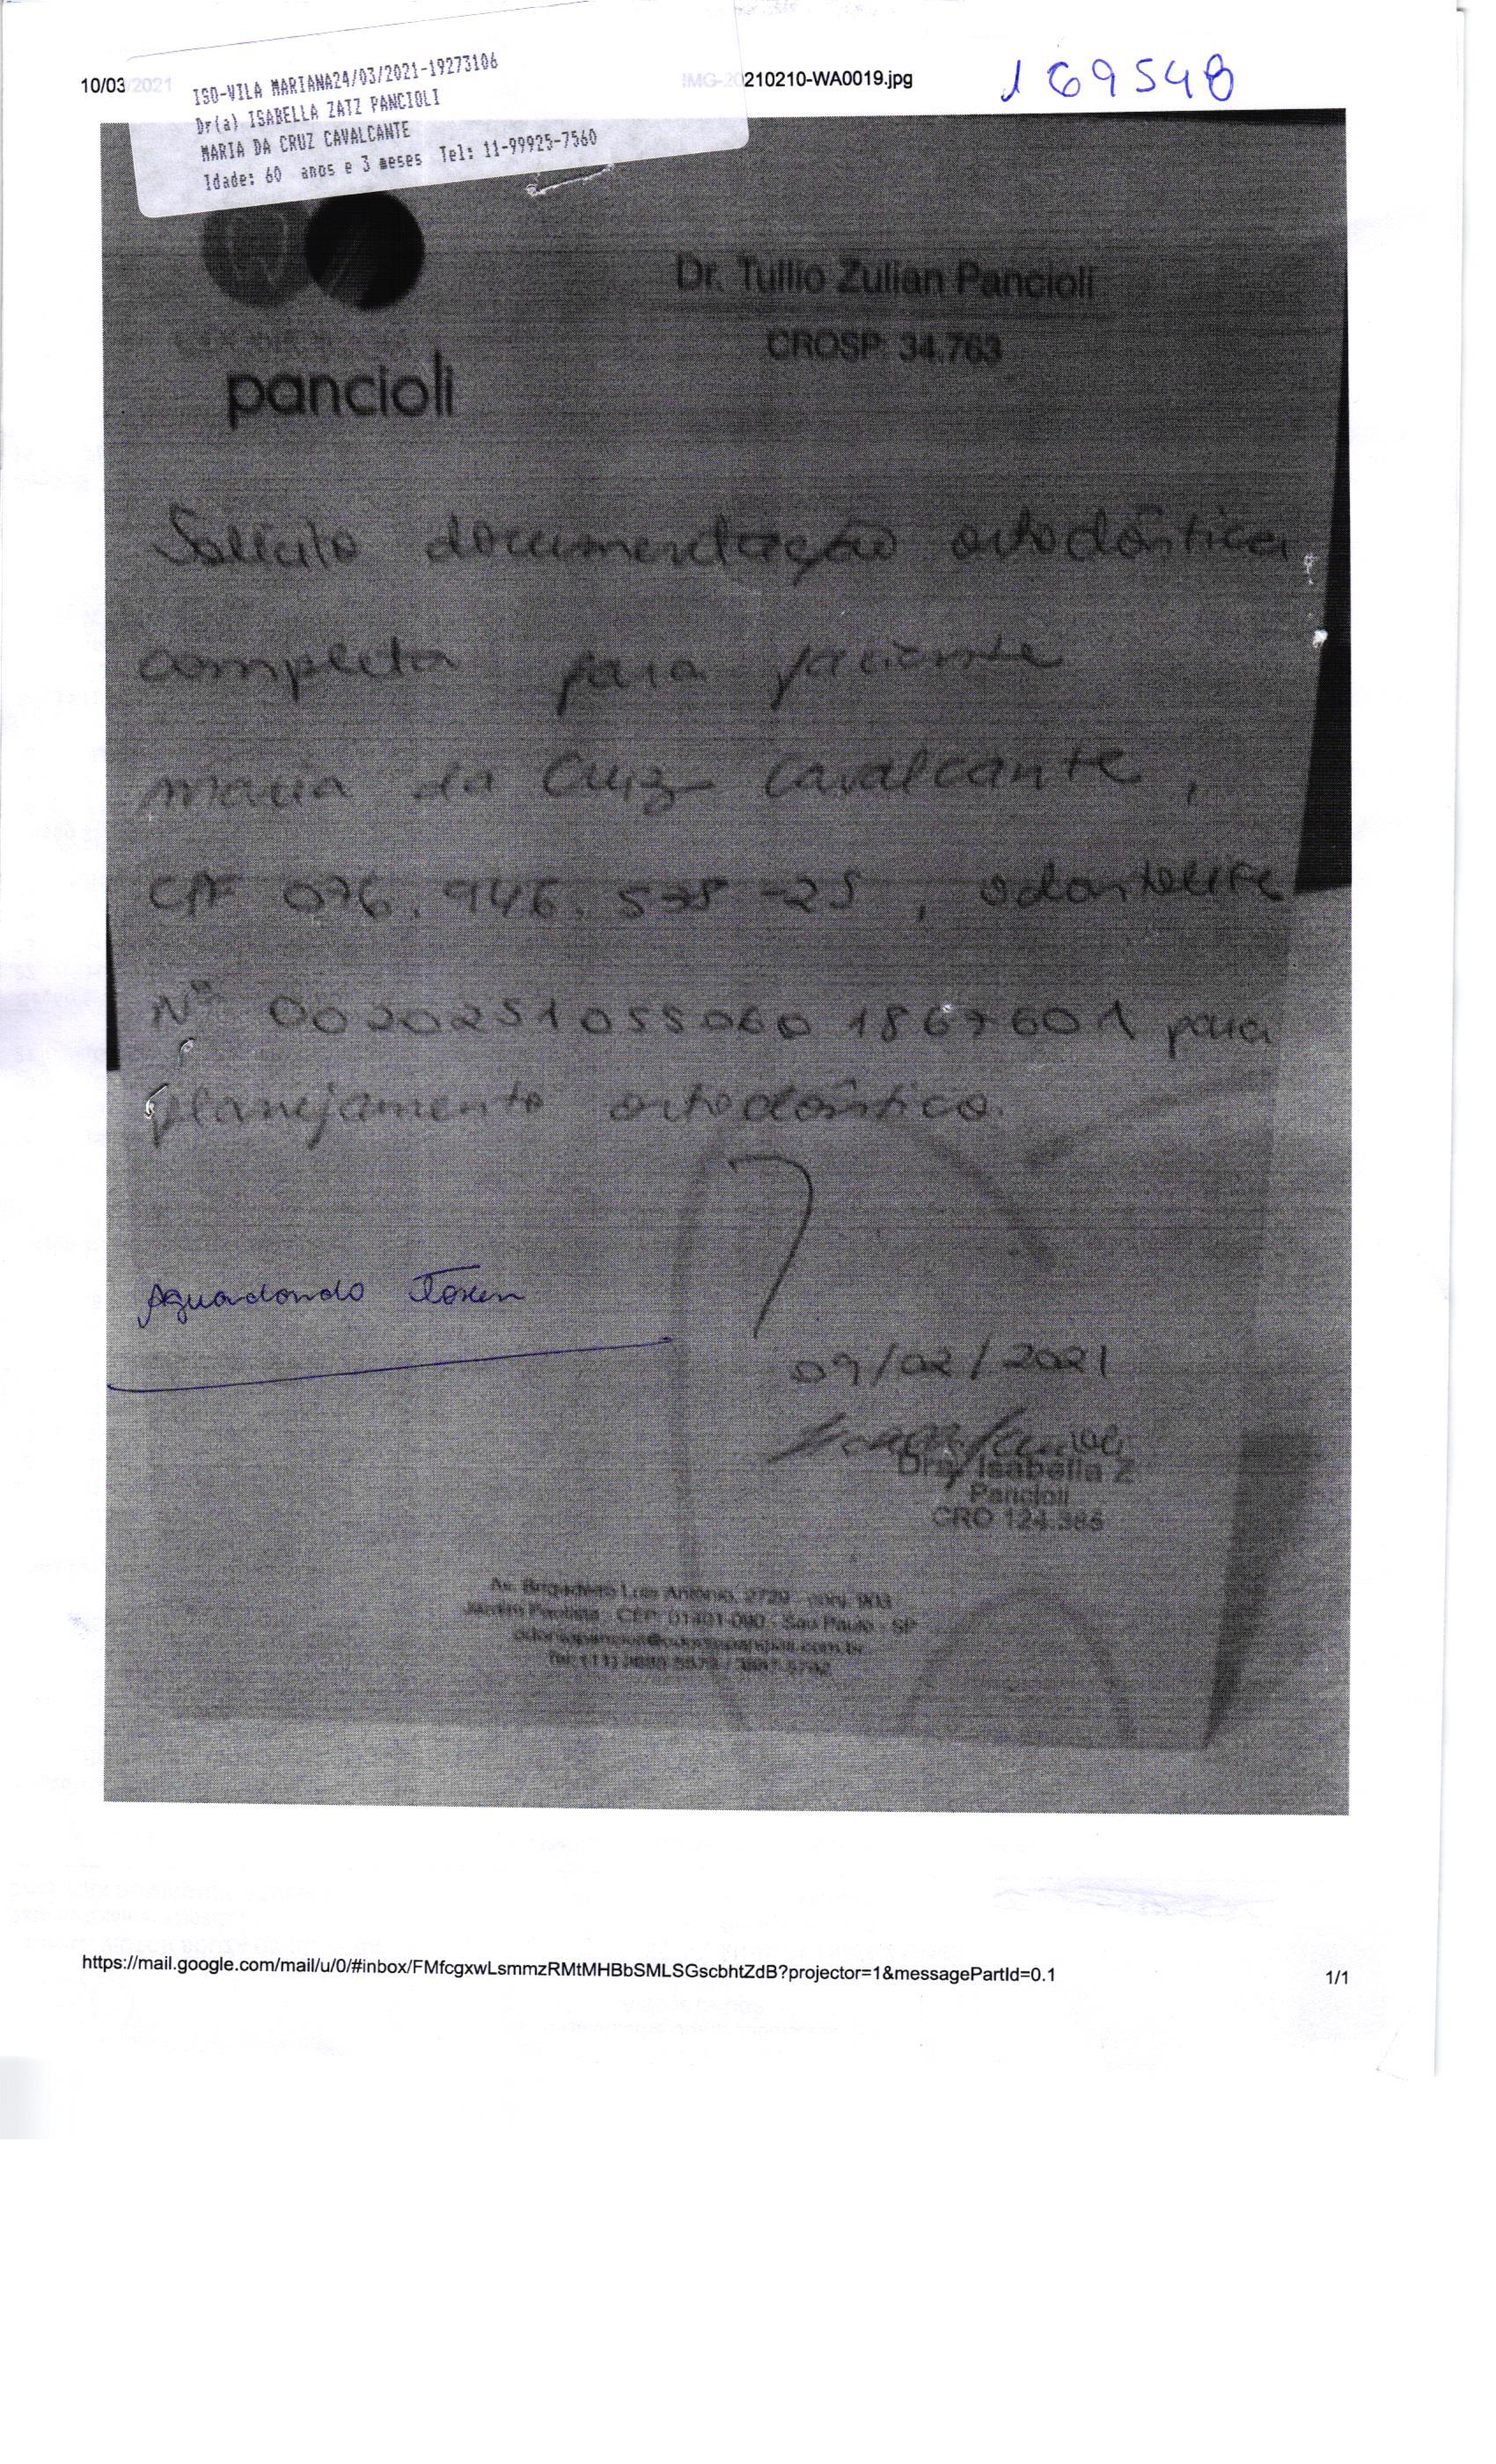 10/03/2021
IMG-20210210-WA0019.jpg
169548
ISO-VILA MARIANA24/03/2021-19273106
Dr(a) ISABELLA ZATZ PANCIOLI
MARIA DA CRUZ CAVALCANTE
Idade: 60 anos e 3 meses Tel: 11-99925-7560
pancioli
Dr. Tullio Zulian Pancioli
CROSP: 34.763
Solicito documentação ortodôntica
completa para paciente
Maria da Cruz Cavalcante,
CPF 076.946.578-25, odontolife
Nº 0020251055060 1867601 para
planejamento ortodôntico.
Aguardando Token
09/02/2021
Dra. Isabella Z
Pancioli
CRO 124.385
Av. Brigadeiro Luis Antônio, 2729 - conj. 903
Jardim Paulista, CEP: 01401-000 - São Paulo - SP
Tel: (11)
https://mail.google.com/mail/u/0/#inbox/FMfcgxwLsmmzRMtMHBbSMLSGscbhtZdB?projector=1&messagePartId=0.1
1/1